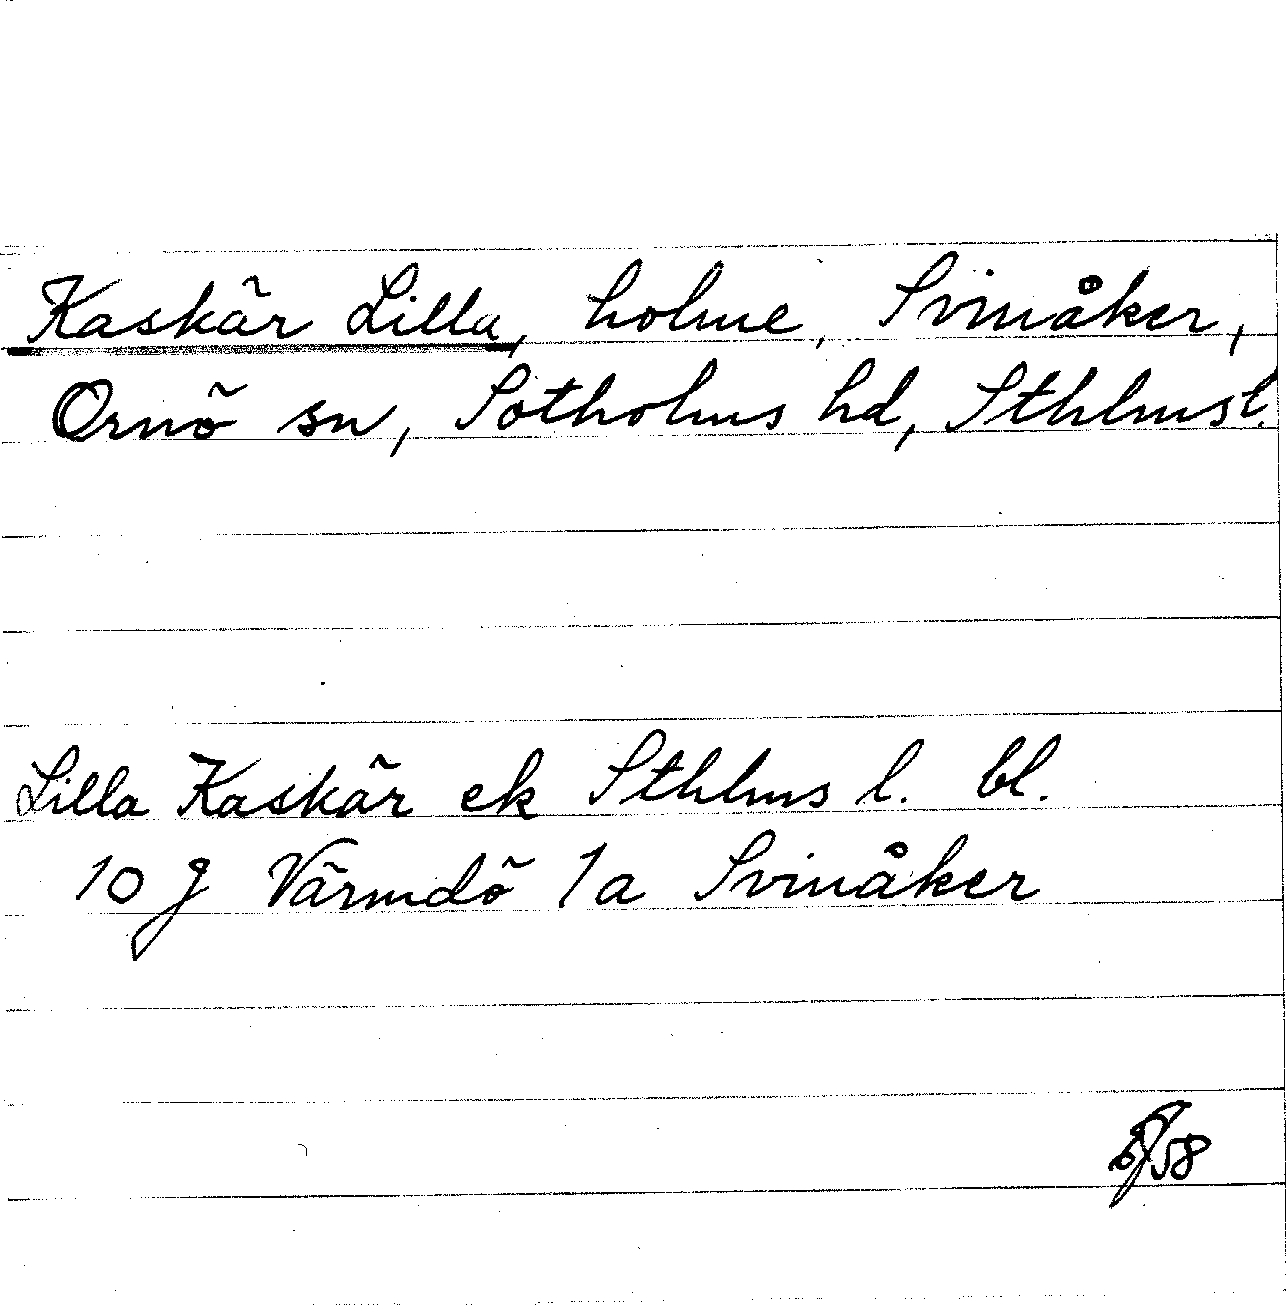 Kaskär Lilla, holme, Svinåker,
Ornö sn, Sotholms hd, Sthlmsl.
Lilla Kaskär ek Sthlms l. bl.
10 J Värmdö 1a Svinåker
58